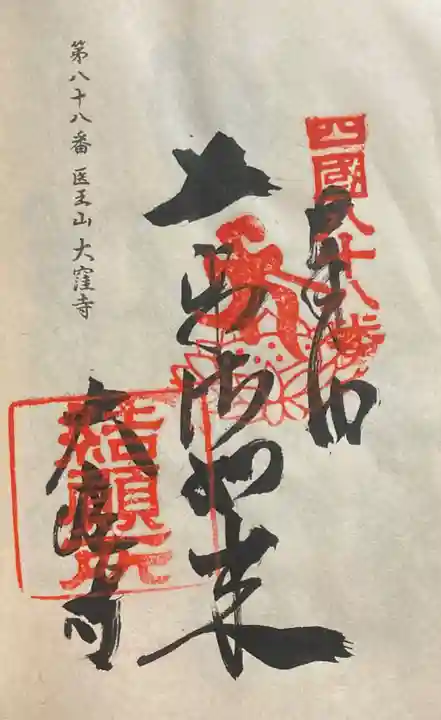 四國八十八番
奉納
薬師如来
大窪寺
結願所
第八十八番 医王山 大窪寺